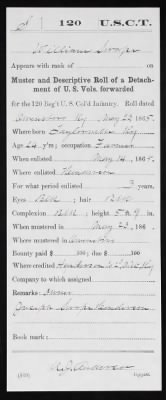 S 120 U.S.C.T.
William
Appears with rank of
Muster and Descriptive Roll of a Detach-
ment of U. S. Vols. forwarded
for the 120 Reg't U. S. Col'd Infantry. Roll dated
Owensboro Ky May 23, 1865.
Where born Ky
Age 24 y'rs; occupation Farmer
When enlisted May 14, 1865.
Where enlisted Henderson
For what period enlisted 3 years.
Eyes Blk; hair Blk
Complexion Blk; height 5 ft. 9 in.
When mustered in May 23, 1865.
Where mustered in Owensboro
Bounty paid $ 100; due $ 100
Where credited Henderson Ky
Company to which assigned
Remarks: owner
Joseph Henderson
Book mark: